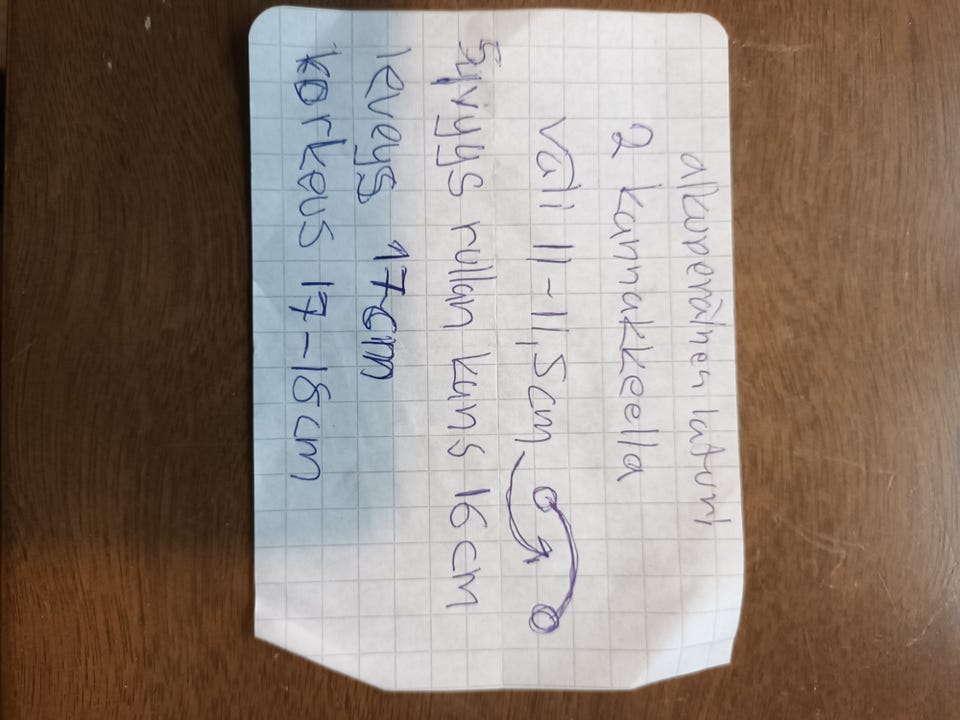 alkuperäinen laturi
2 kannakkeella
väli 11-11,5cm
syvyys rullan kans 16cm
leveys 17cm
korkeus 17-18cm